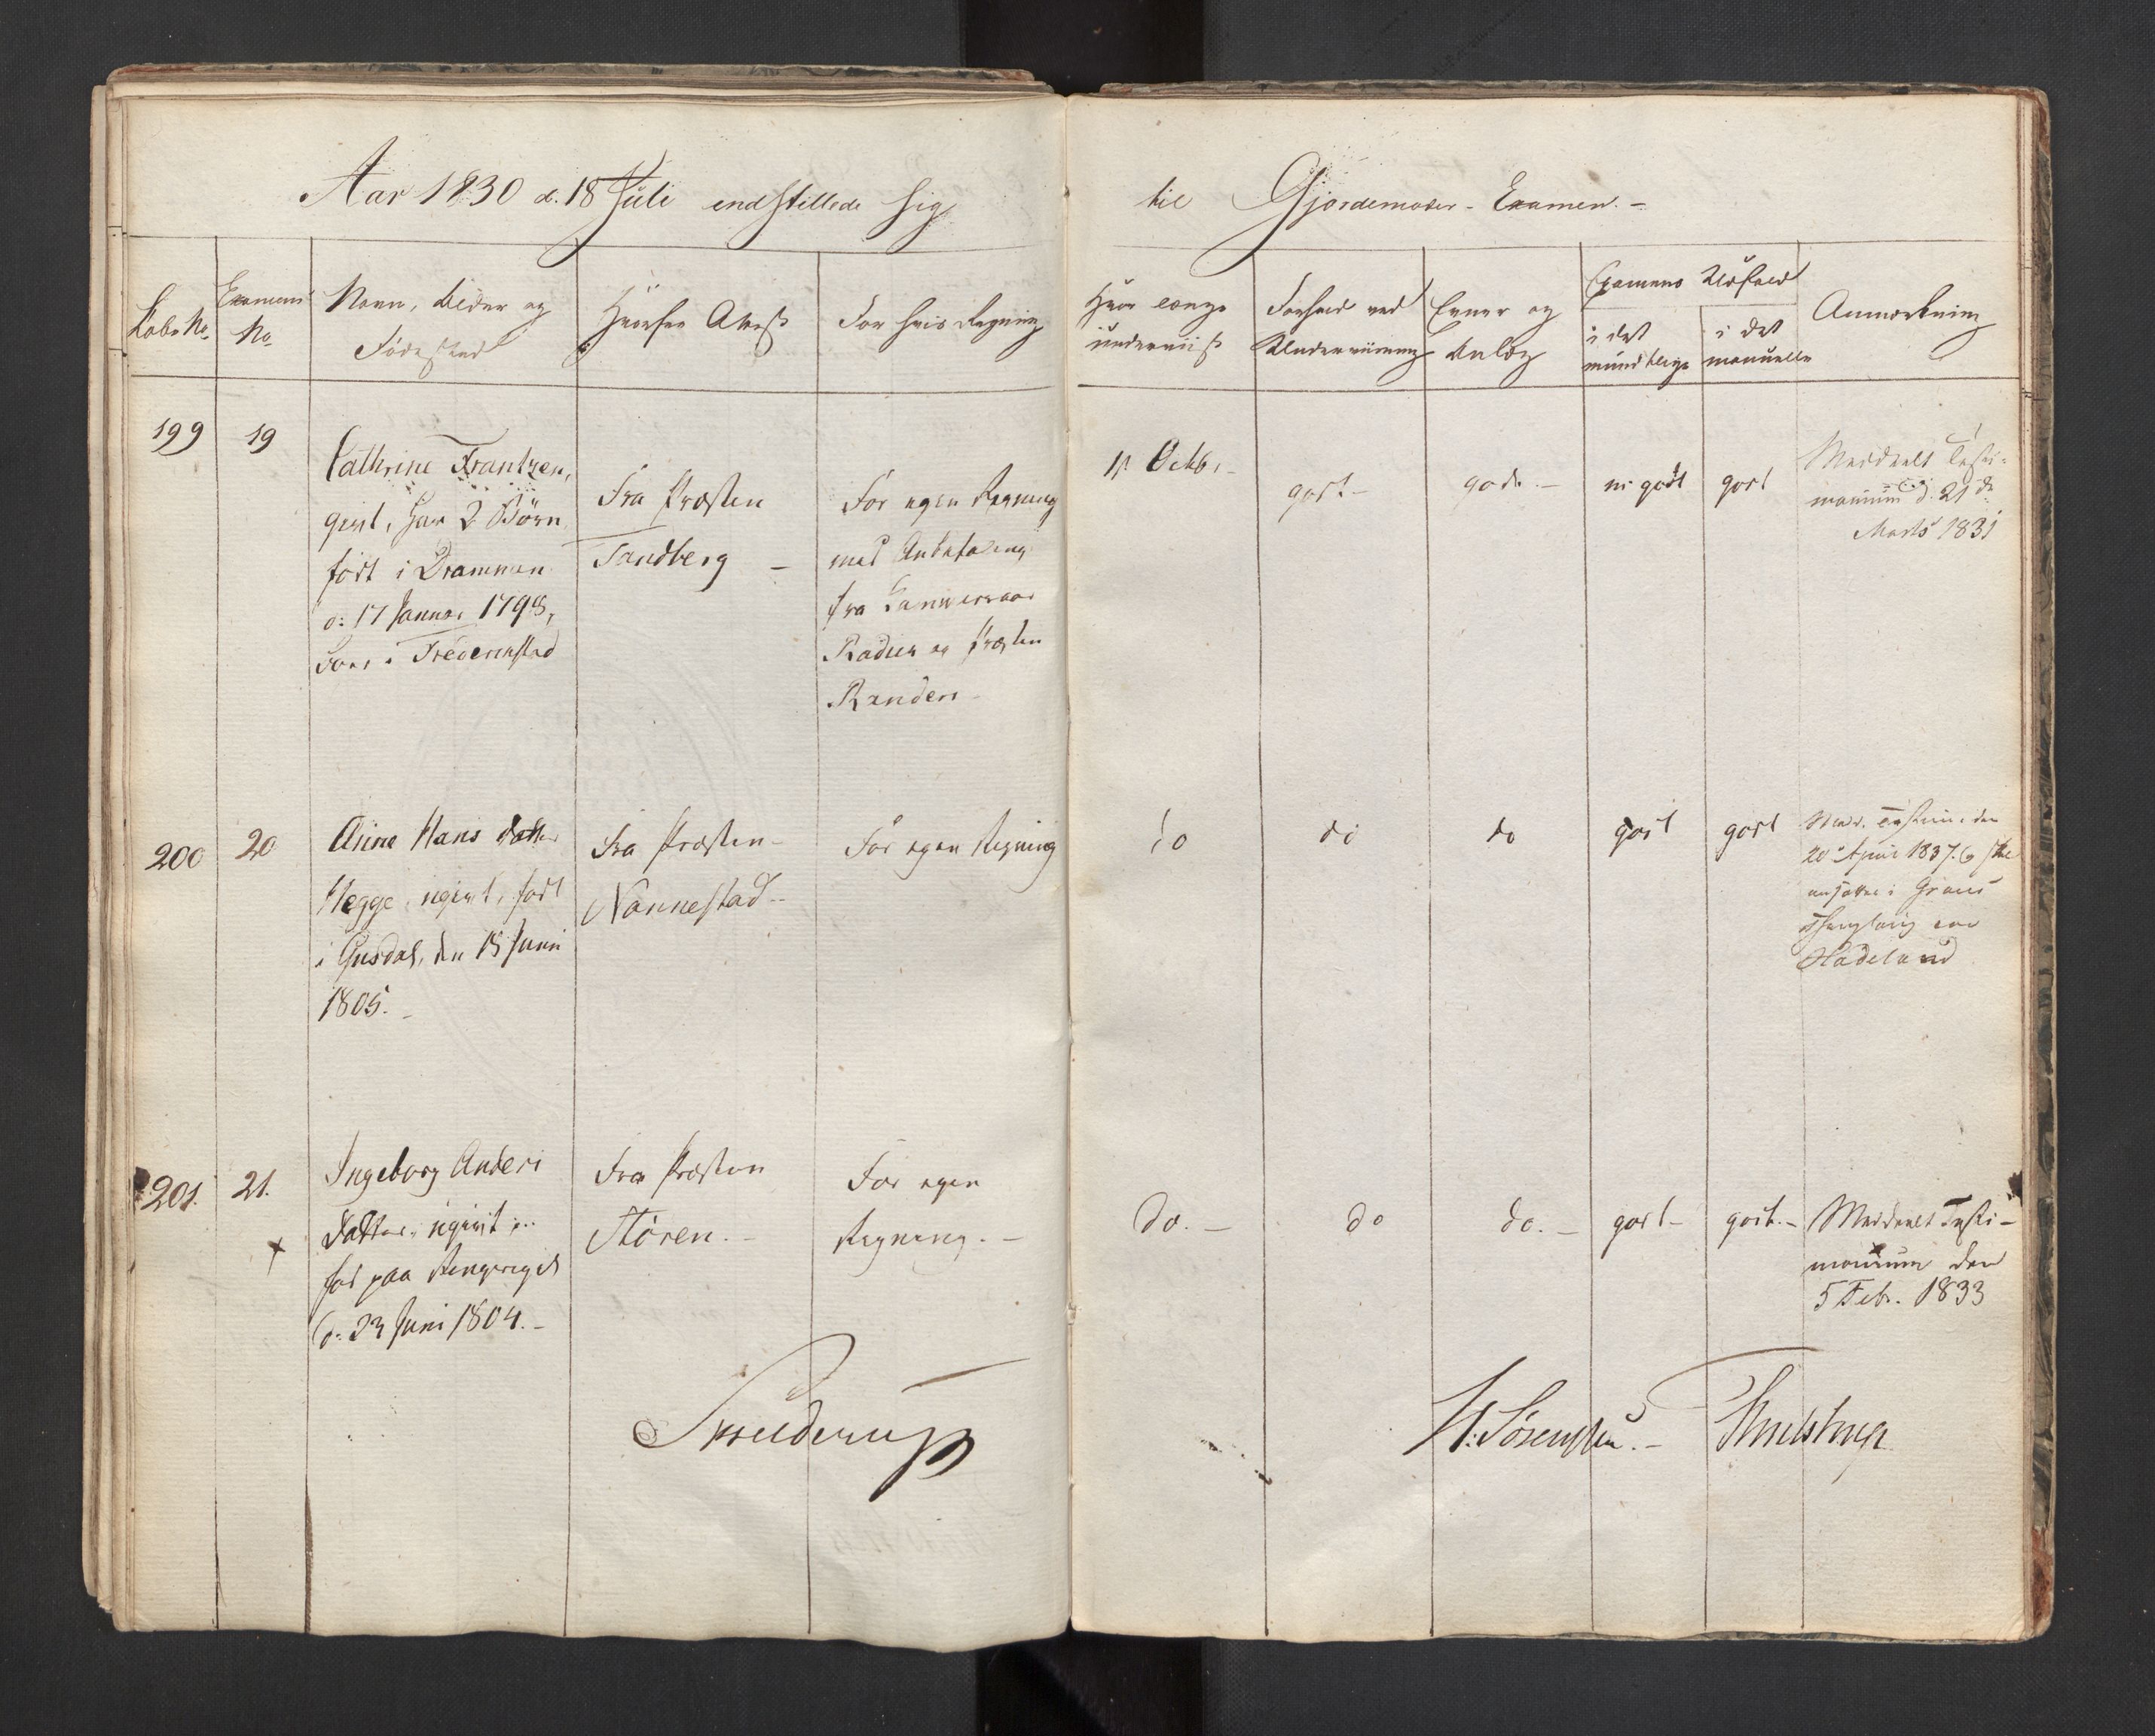 Aar 1830 d. 18 Juli indstillede sig
til Gjordemoder-Examen.-
Løbe No.
Examens No.
Navn, Alder og
Fødested
Hvorfra Attest
For hvis Regning
Hvor længe
underviist
Forhold ved
Underviisning
Evner og
Anlæg
Examens Udfald
i det
mundtlige
i det
manuelle
Anmærkning
199
19
Cathrine Frantzen,
givt, har 2 Børn
født i Drammen
d: 17 Januar 1798,
Boer i Fredrikstad
Fra Præsten
Tandberg -
For egen Regning
med Anbefaling
fra
og Præsten
1. Octb.
godt-
gode.-
godt
godt
Meddeelt Testi-
monium d. 21 de
Marts 1831
200
20
Anne Hans datter
Hegge, ugivt, født
i Gusdal, den 15 Juni
1805.-
Fra Præsten-
Nannestad-
For egen Regning
do
do
do
godt
godt
Medd. Testim. den
20 April 1837.
ansættes i Grans
paa
Hadeland
201.
21.
Ingeborg Anders
Datter, ugivt
fød paa Ringerige
d: 23 Juni 1804.-
Fra Præsten
Støren.-
For egen
Regning.-
do.-
do
do.-
godt-
godt.-
Meddeelt Testi-
monium den
5 Feb. 1833
Skielderup
H: Sørenssen.-
Thulstrup